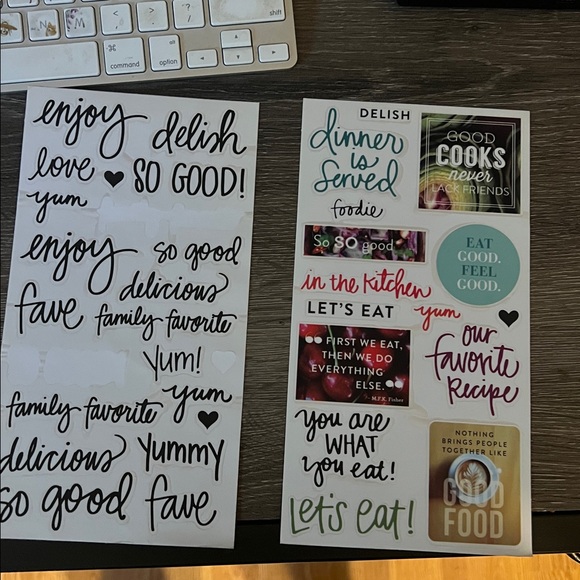 shift
command
option
enjoy
delish
love
SO GOOD!
yum
enjoy
so good
delicious
fave
family favorite
Yum!
yum
family favorite
delicious
yummy
so good
fave
DELISH
dinner
is
served
GOOD
COOKS
never
LACK FRIENDS
foodie
So SO good
EAT
GOOD.
FEEL
GOOD.
in the kitchen
yum
LET'S EAT
"FIRST WE EAT,
THEN WE DO
EVERYTHING
ELSE."
- M.F.K. Fisher
our
favorite
Recipe
you are
WHAT
you eat!
NOTHING
BRINGS PEOPLE
TOGETHER LIKE
GOOD
FOOD
Let's eat!